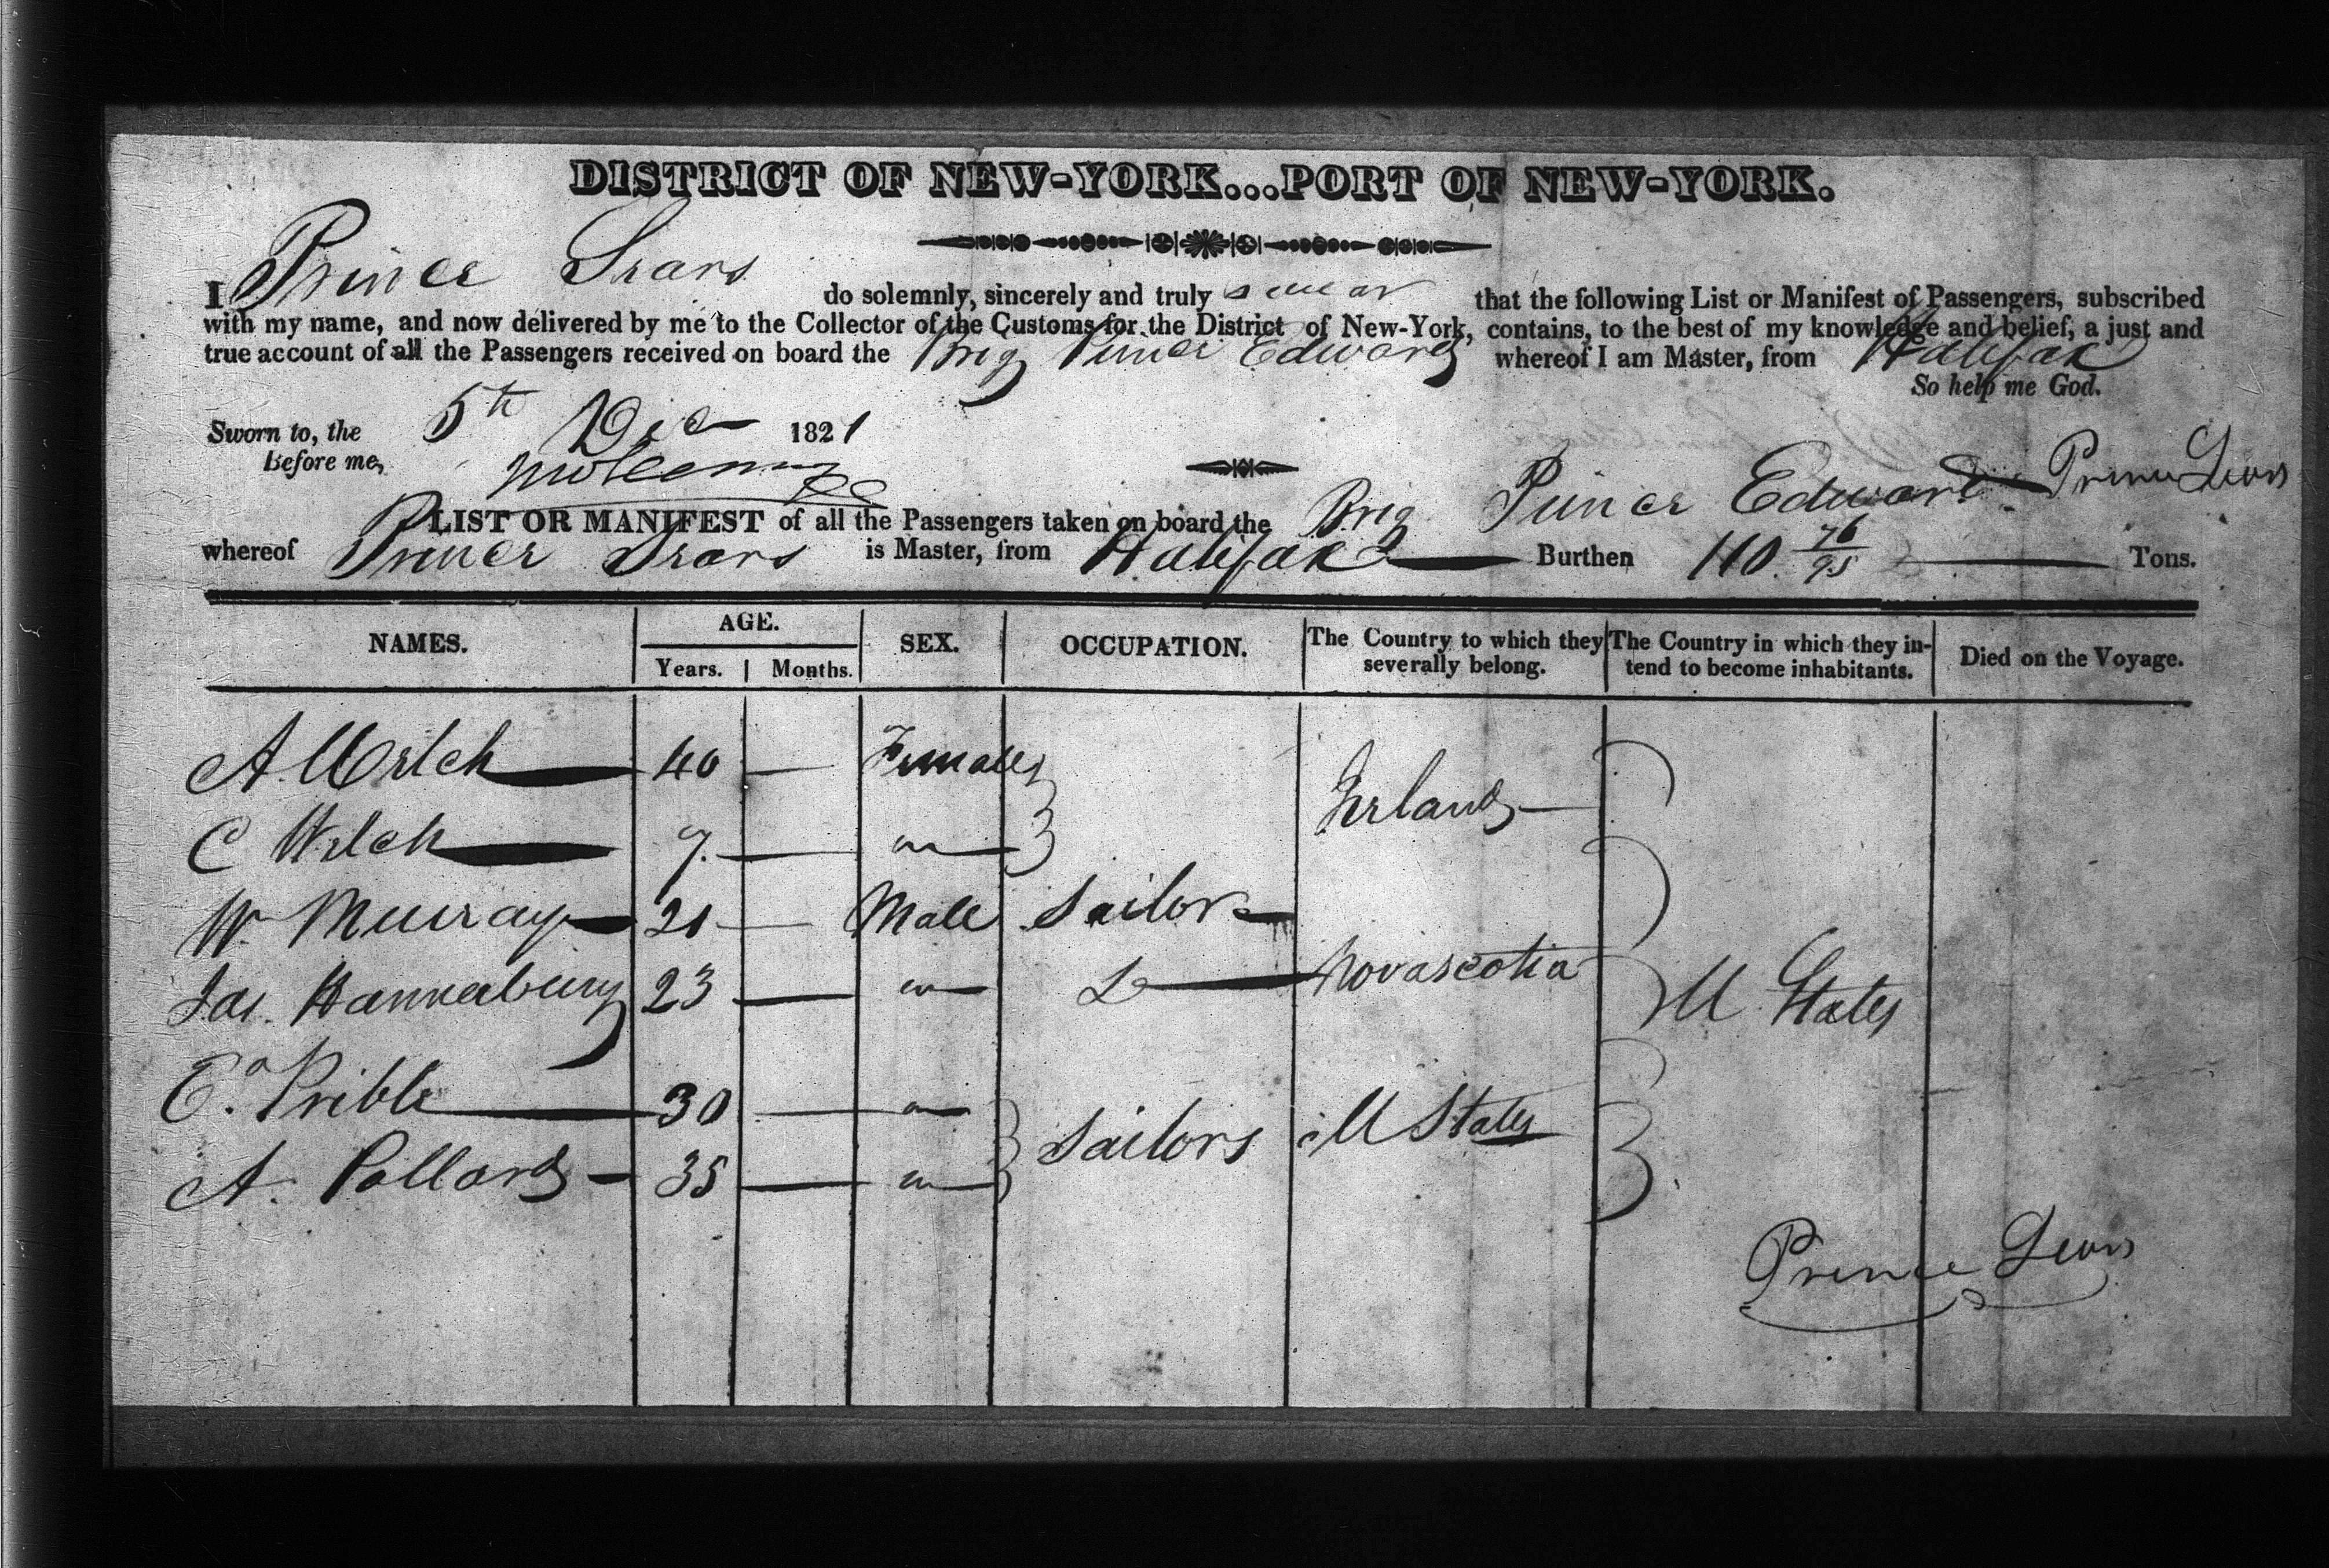 DISTRICT OF NEW-YORK...PORT OF NEW-YORK.
I Prince Sears do solemnly, sincerely and truly swear that the following List or Manifest of Passengers, subscribed
with my name, and now delivered by me to the Collector of the Customs for the District of New-York, contains, to the best of my knowledge and belief, a just and
true account of all the Passengers received on board the Brig Prince Edward whereof I am Master, from Halifax
So help me God.
Sworn to, the 5th Dec 1821
Before me,
Prince Sears
LIST OR MANIFEST of all the Passengers taken on board the Brig Prince Edward
whereof Prince Sears is Master, from Halifax Burthen 110 76/95 Tons.
NAMES. AGE. SEX. OCCUPATION. The Country to which they severally belong. The Country in which they intend to become inhabitants. Died on the Voyage.
Years. Months.
A. Welch 40 — Females
Ireland
C Welch 7. — "
W. Murray 21 — Male Sailor
Jas. Hannabury 23 — " Do Novascotia U States
E. Prible 30 — "
Sailors U States
A. Pollard 35 — "
Prince Sears